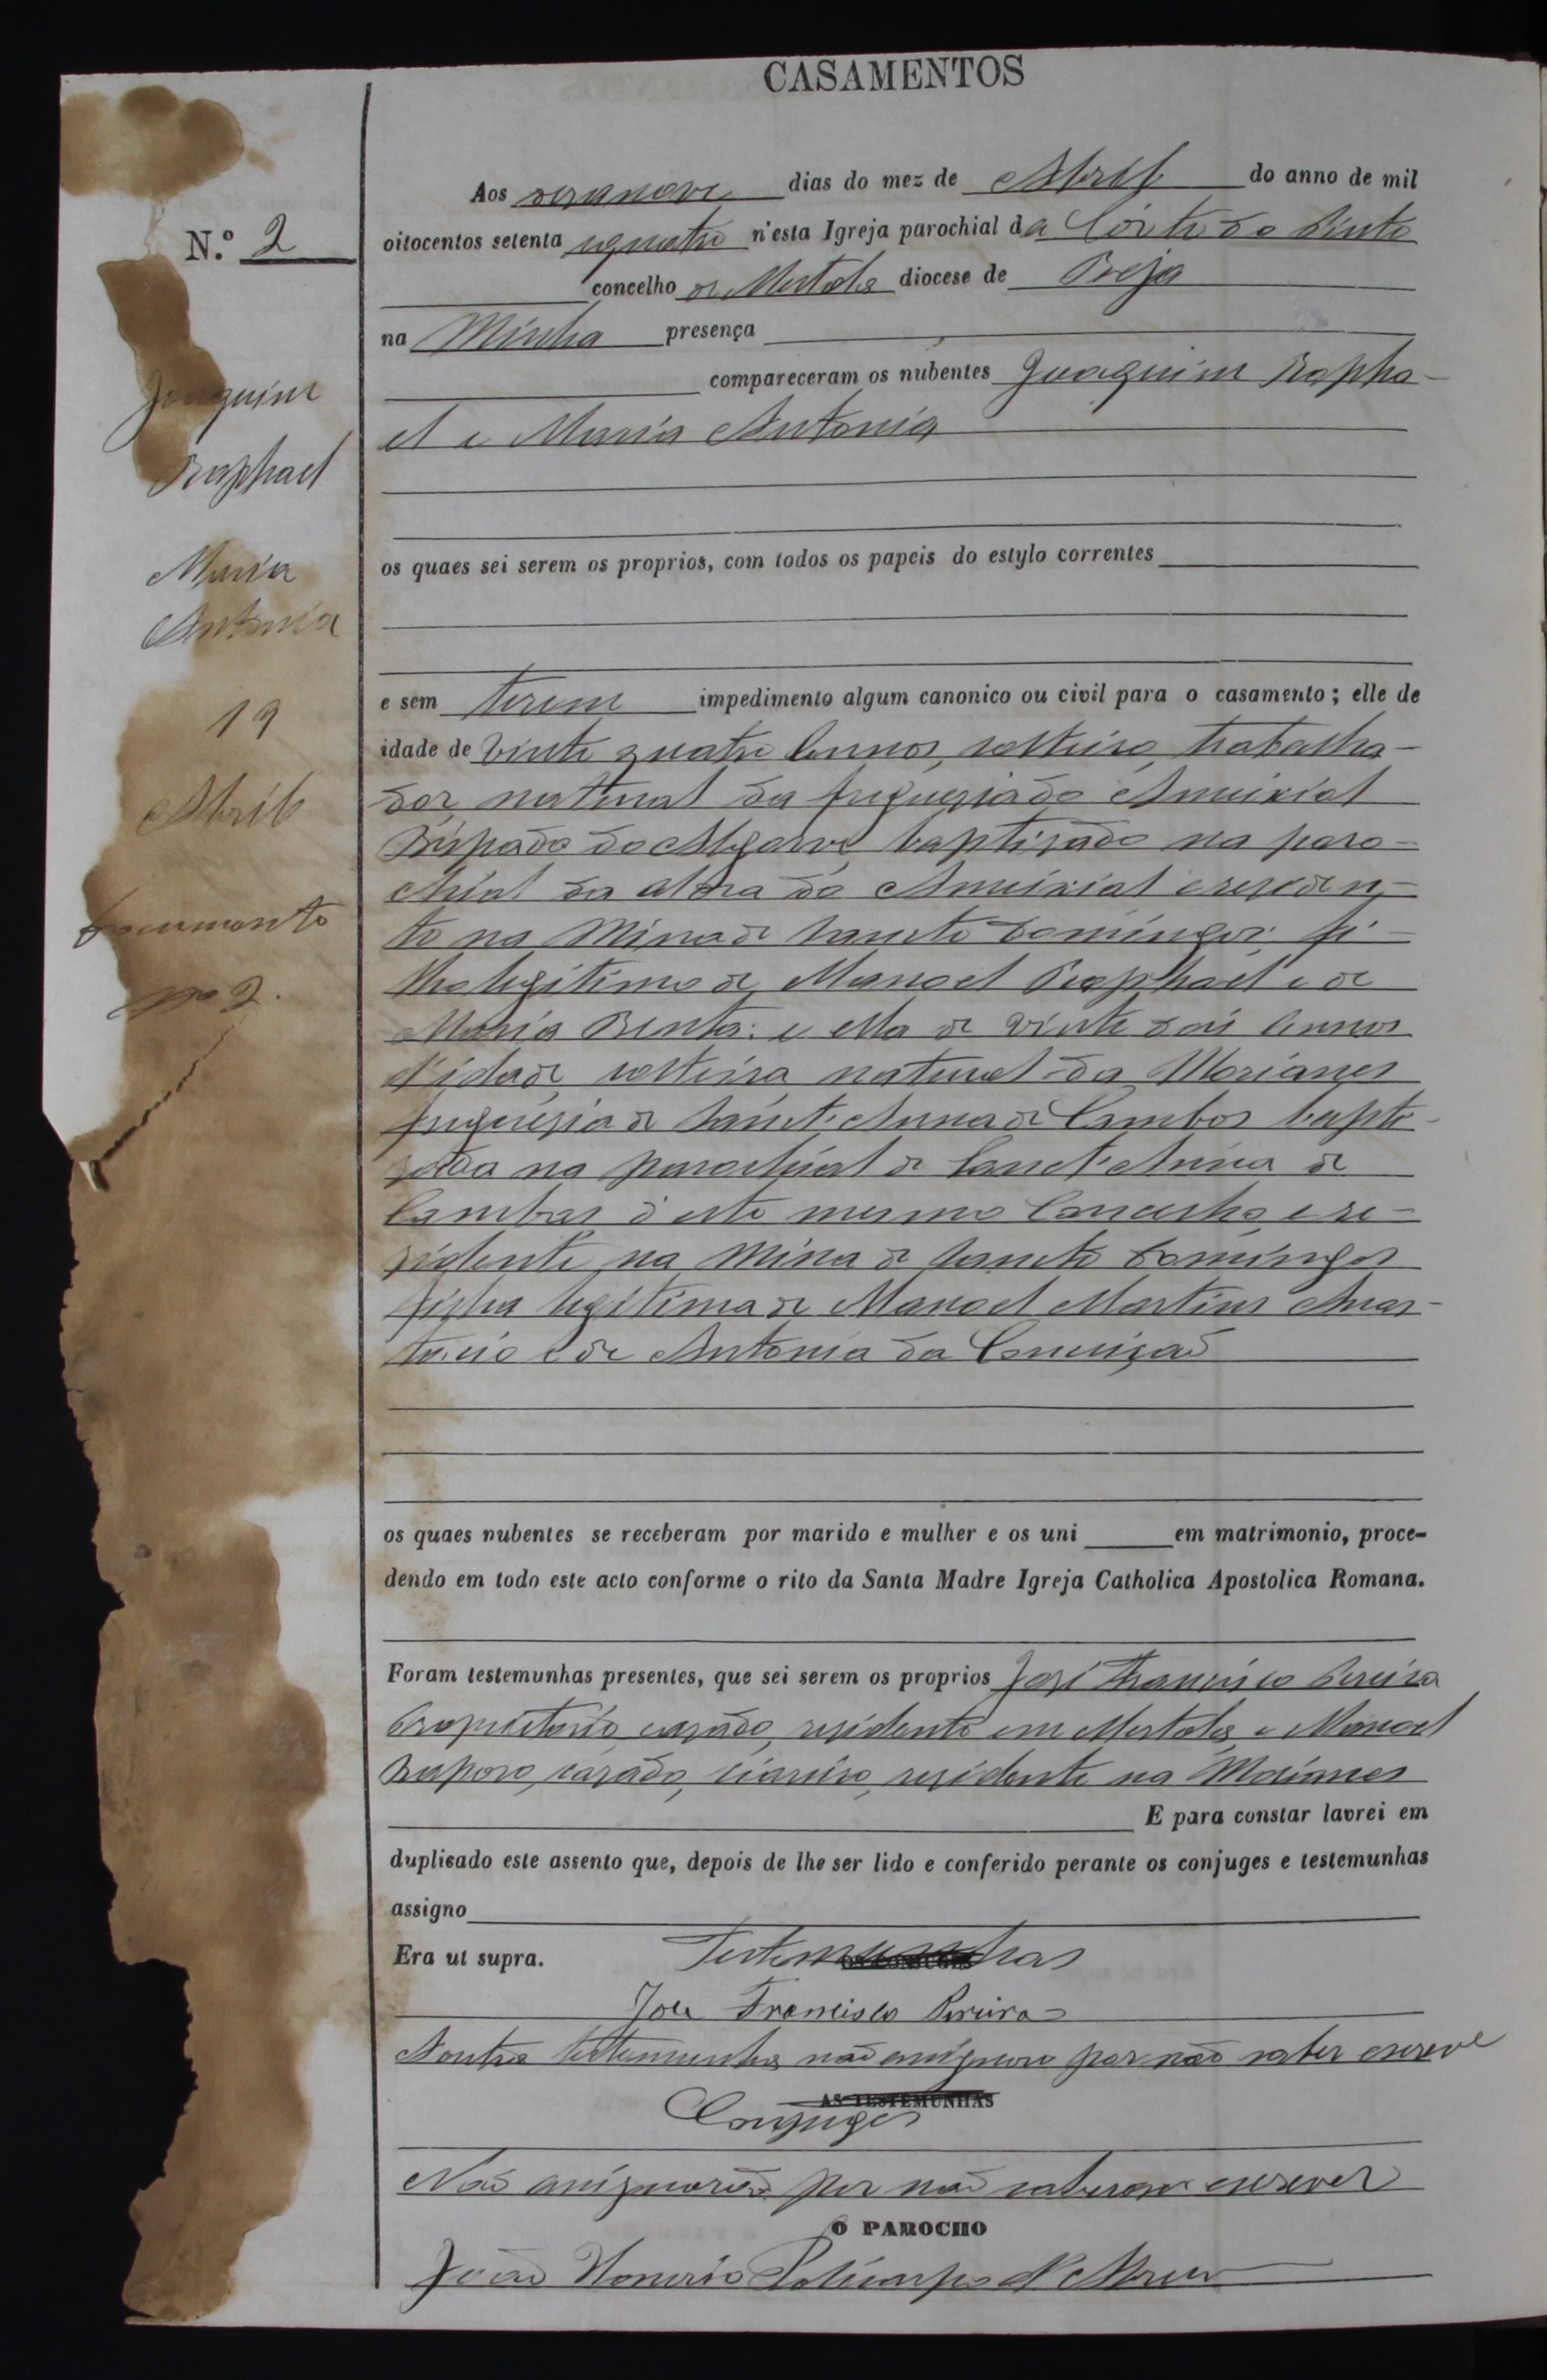 CASAMENTOS
Aos desanove dias do mez de Abril do anno de mil
N.º 2
oitocentos setenta equatro n'esta Igreja parochial da Côrte do Pinto
concelho de Mertola diocese de Beja
na Minha presença
compareceram os nubentes Joaquim Rapha-
el e Maria Antonia
Joaquim
Raphael
Maria
Antonia
19
Abril
Documento
nº 2.
os quaes sei serem os proprios, com todos os papeis do estylo correntes
e sem terem impedimento algum canonico ou civil para o casamento; elle de
idade de vinte quatro annos, solteiro, trabalha-
dor, natural da freguezia do Ameixial
Bispado do Algarve baptizado na paro-
chial da do Ameixial e residen-
te na Mina de Sancto Domingos fi-
lho legitimo de Manoel Raphael e de
Maria Benta: e ella de vinte dois annos
d'idade solteira natural da Moreanes
freguezia de Sanct'Anna de Cambas bapti-
zada na parochial de Sanct'Anna de
Cambas d'este mesmo Concelho e re-
zidente na Mina de Sancto Domingos
filha legitima de Manoel Martins Anas-
tacio e de Antonia da Conceição
os quaes nubentes se receberam por marido e mulher e os uni em matrimonio, proce-
dendo em todo este acto conforme o rito da Santa Madre Igreja Catholica Apostolica Romana.
Foram testemunhas presentes, que sei serem os proprios José Francisco Pereira
Proprietario, cazado, rezidente em Mertola, e Manoel
Raposo, cazado, rezidente na Moreanes
E para constar lavrei em
duplicado este assento que, depois de lhe ser lido e conferido perante os conjuges e testemunhas
assigno
Era ut supra.
Testemunhas
OS CONJUGES
Jose Francisco Pereira
A outra testemunha não assignou por não saber escreve
AS TESTEMUNHAS
Conjuges
Não assignarão por não saberem escrever
O PAROCHO
João Honorio Policarpo d'Abreu